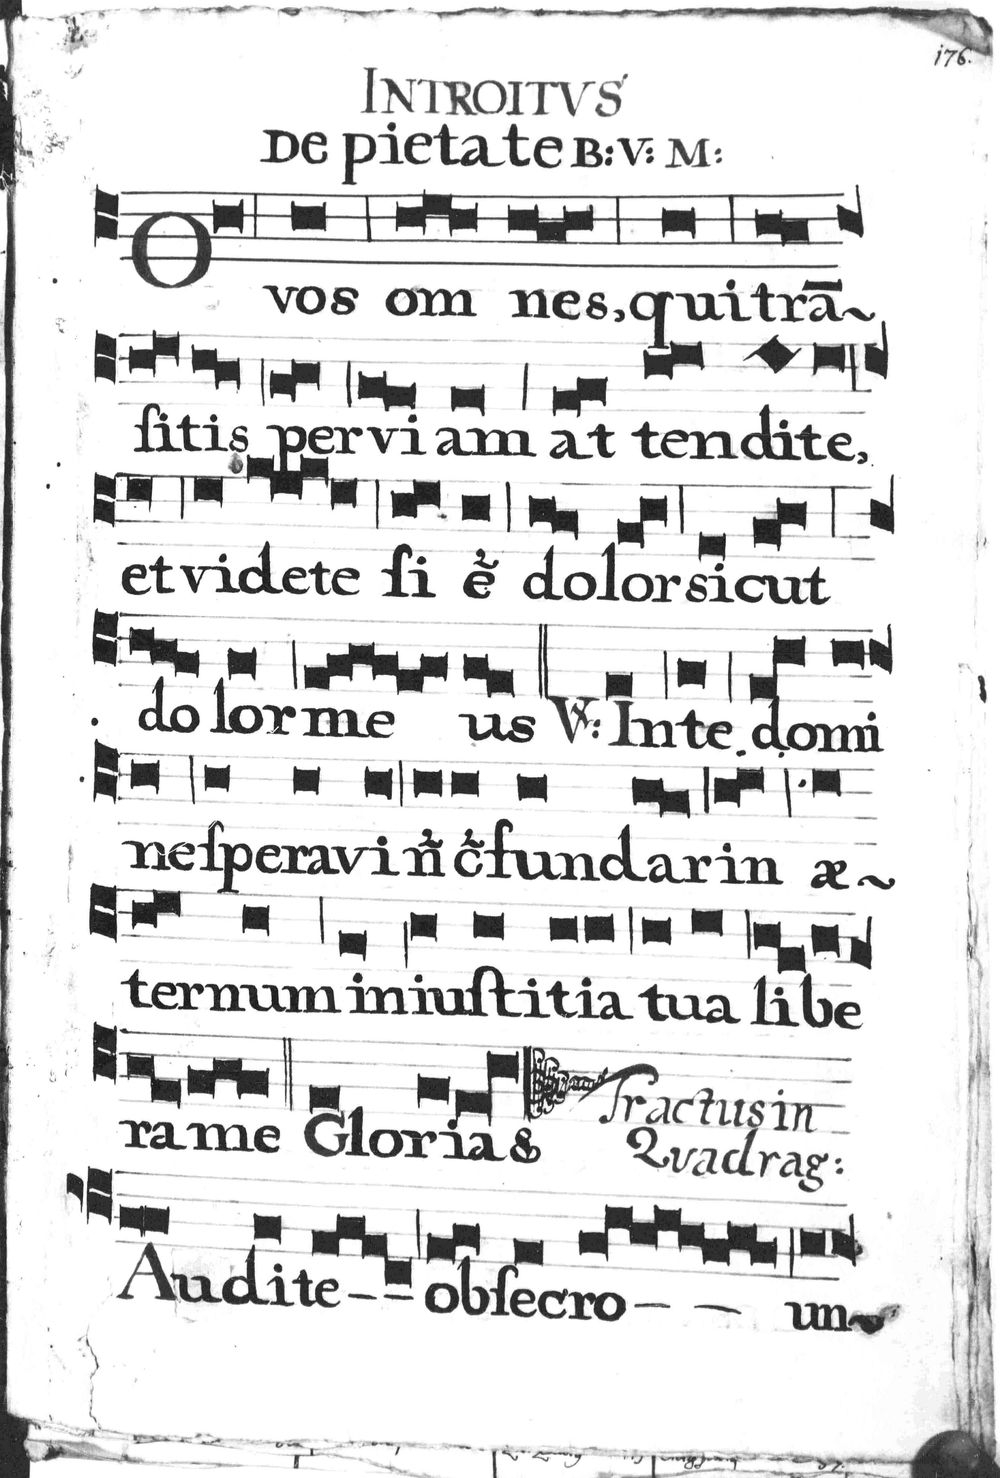 176.
INTROITVS
De pietate B: V: M:
O vos om nes, qui trā~
ſitis per vi am at tendite,
et videte ſi ẽ dolor sicut
do lor me us ℣: In te domi
ne ſperavi ñ cſundar in æ~
ternum in iuſtitia tua libe
ra me Gloria &
Tractus in
Quadrag:
Audite -- obſecro -- un~